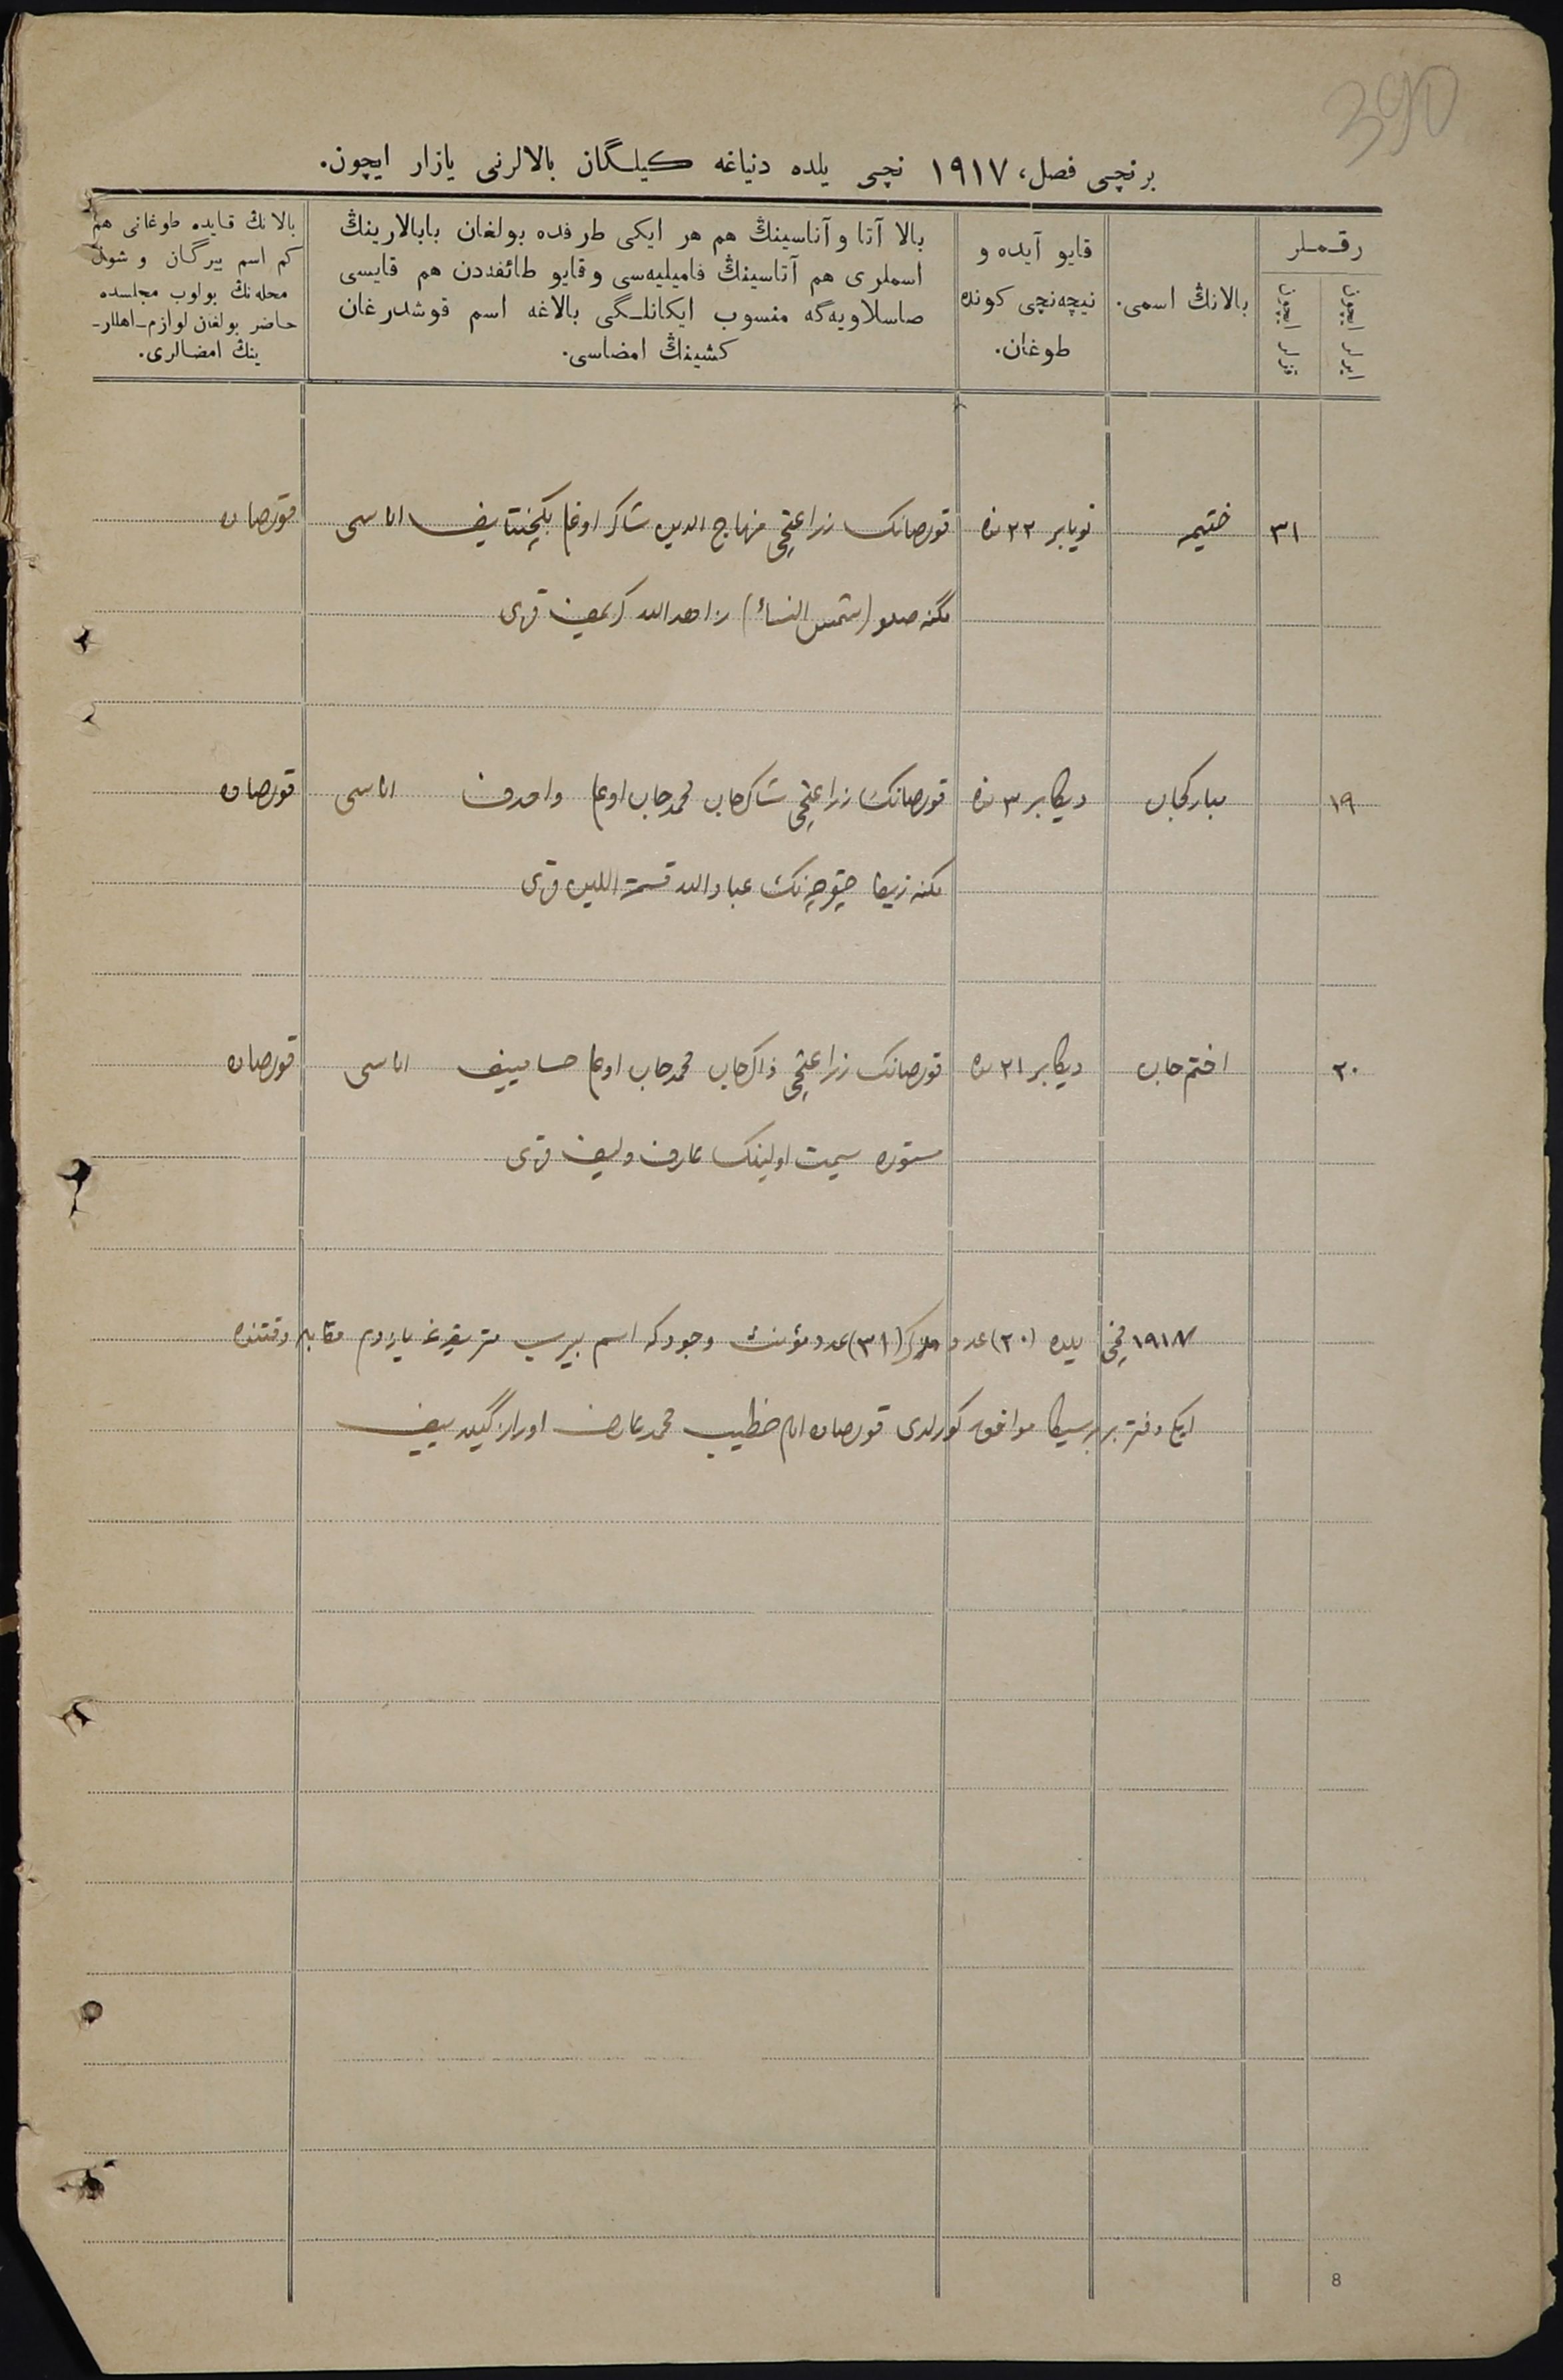 390
برنچی فصل، ١٩١٧ نچی یلده دنیاغه كیلگان بالالرنی یازار ایچون.
رقملر
ایرلر ایچون
قزلر ایچون
بالانڭ اسمی.
قایو آیده و
نیچه‌نچی كونده
طوغان.
بالا آتا و آناسینڭ هم هر ایكی طرفده بولغان بابالارینڭ
اسملری هم آتاسینڭ فامیلیه‌سی و قایو طائفه‌دن هم قایسی
صاسلاویه‌گه منسوب ایكانلـگی بالاغه اسم قوشدرغان
كشینڭ امضاسی.
بالانڭ قایده طوغانی هم
كم اسم بیرگان و شول
محله‌نڭ بولوب مجلسده
حاضر بولغان لوازم-اهللر-
ینڭ امضالری.
٣١
ختیمه
نویابر ٢٢ نده
قورصانك زراعتچی منهاج الدین شاكر اوغلی بكچنتایف اناسی
قورصاده
شمس النساء كریموف قزی
١٩
مباركجان
دیكابر ٣ نده
قورصانك زراعتچی شاكرجان محمدجان اوغلی واحدف اناسی
قورصاده
عبادالله قزی
٢٠
اختم جان
دیكابر ٢١ نده
قورصانك زراعتچی ذاكرجان محمدجان اوغلی حسابییف اناسی
قورصاده
مستوره سیمت اولینك عارف ولیف قزی
١٩١٧ نچی یلده (٢٠) عدد مذكر (٣١) عدد مؤنث وجودكه اسم بیریب متریقه‌غه یازدم مقابله وقتنده
ایكی دفتر بربرسیكا موافق كورلدی قورصاده امام خطیب محمد عارف
8